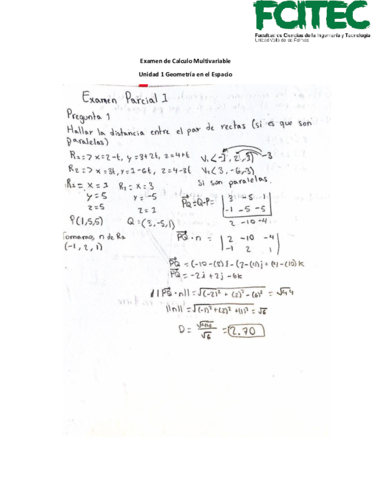 FCITEC
Facultad de Ciencias de la Ingeniería y Tecnología
Unidad Valle de las Palmas
Examen de Calculo Multivariable
Unidad 1 Geometría en el Espacio
Examen Parcial 1
Pregunta 1
Hallar la distancia entre el par de rectas (si es que son
paralelas)
R1=> x=2-t, y=3+2t, z=4+t V1<-1, 2, 1> -3
R2=> x=3t, y=1-6t, z=4-3t V2(3, -6, -3)
Si son paralelas.
R1= x=1 R2= x=3
y=5 y=-5
z=5 z=1
PQ=Q-P= | 3 -5 1 |
| -1 -5 -5 |
2 -10 -4
P(1,5,5) Q=(3,-5,1)
Tomamos, n de R1
(-1, 2, 1)
PQ·n = | 2 -10 -4 |
| -1 2 1 |
PQ=(-10-(8))i-(2-(4))j+(4-(10))k
PQ=-2i+2j-6k
||PQ·n||=√(-2)²+(2)²-(6)² = √44
||n||=√(-1)²+(2)²+(1)² = √6
D= √44/√6 = 2.70